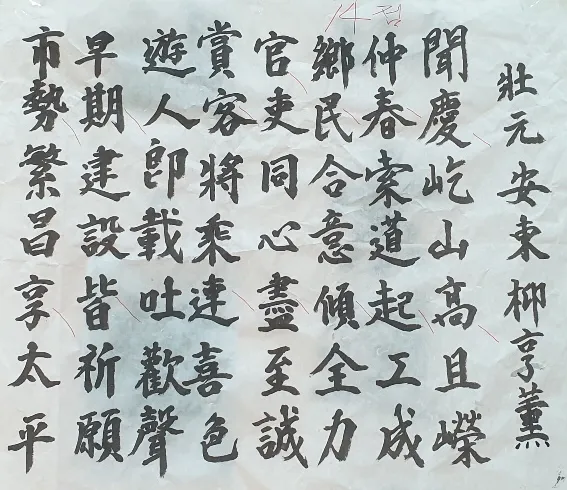 14점
壯元 安東 柳亨薰
聞慶屹山高且嶸
仲春索道起工成
鄉民合意傾全力
官吏同心盡至誠
賞客將乘逹喜色
遊人即載吐歡聲
早期建設皆祈願
市勢繁昌享太平